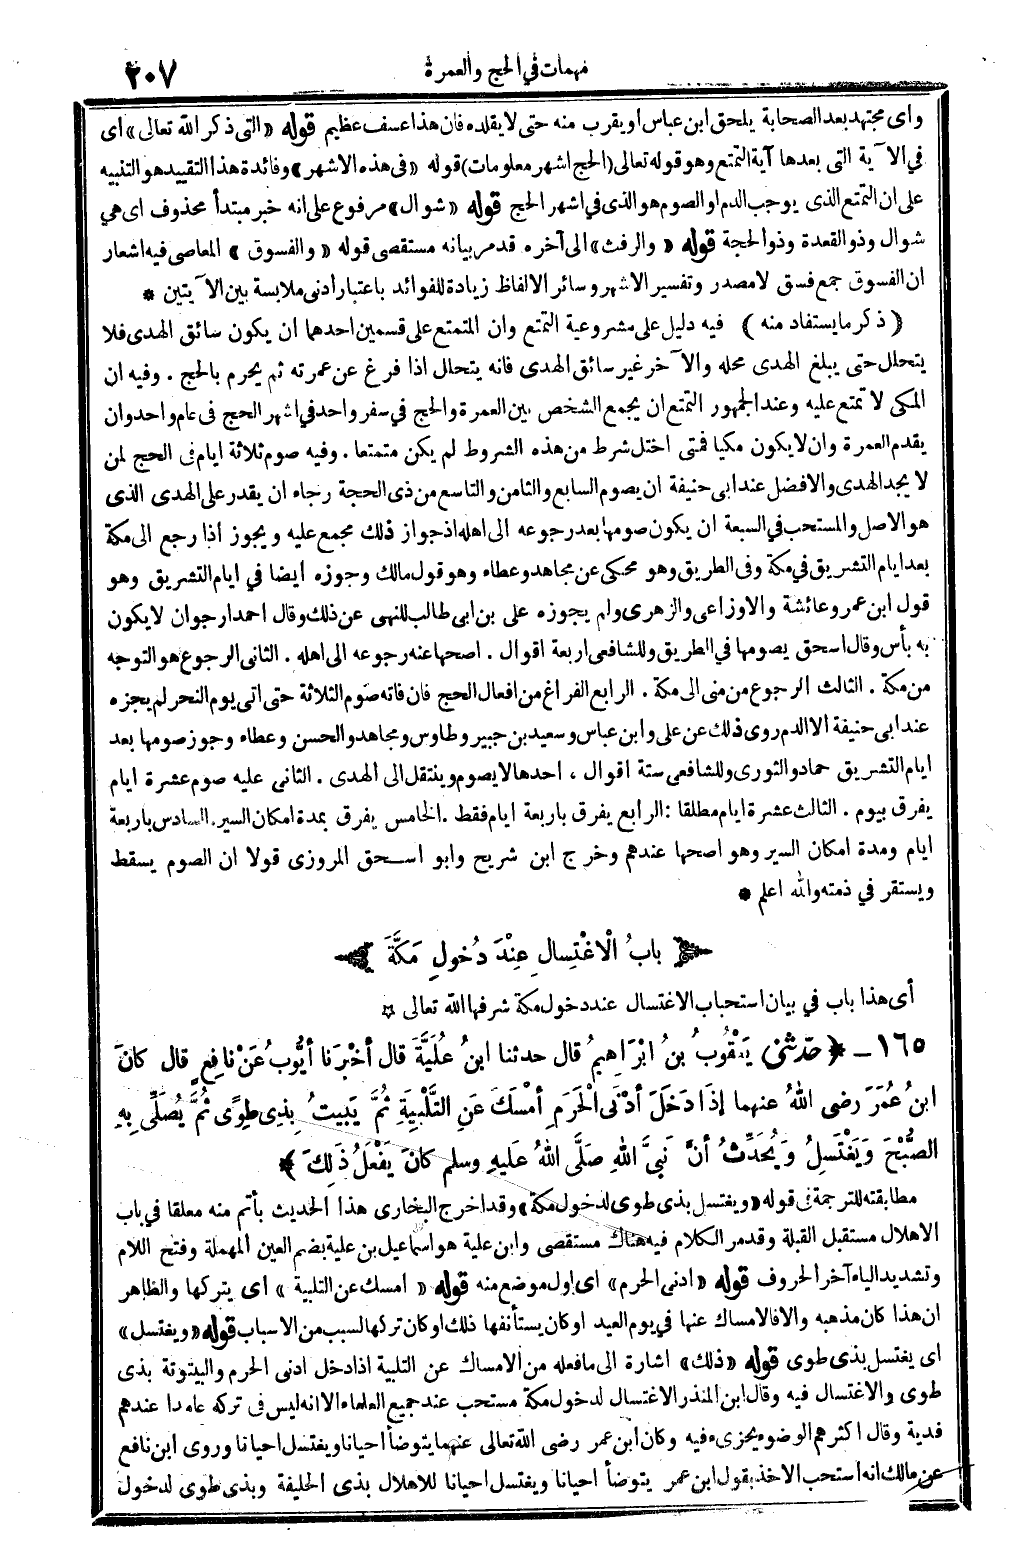 مهمات في الحج والعمرة ٢٠٧
وأى مجتهد بعد الصحابة يلحق ابن عباس أو يقرب منه حتى لا يقلده فان هذا عسف عظيم قوله «التى ذكر الله تعالى» أى
في الآية التى بعدها آية التمتع وهو قوله تعالى (الحج اشهر معلومات) قوله «فى هذه الاشهر» وفائدة هذا التقييد هو التنبيه
على ان التمتع الذى يوجب الدم او الصوم هو الذى في اشهر الحج قوله «شوال» مرفوع على انه خبر مبتدأ محذوف اى هي
شوال وذو القعدة وذو الحجة قوله «والرفث» الى آخره قدمر بيانه مستقصى قوله «والفسوق» المعاصى فيه اشعار
ان الفسوق جمع فسق لا مصدر وتفسير الاشهر وسائر الالفاظ زيادة للفوائد باعتبار أدنى ملابسة بين الآيتين *
(ذكر ما يستفاد منه) فيه دليل على مشروعية التمتع وان المتمتع على قسمين احدهما ان يكون سائق الهدى فلا
يتحلل حتى يبلغ الهدى محله والآخر غير سائق الهدى فانه يتحلل اذا فرغ عن عمرته ثم يحرم بالحج . وفيه ان
المكى لا تمتع عليه وعند الجمهور التمتع ان يجمع الشخص بين العمرة والحج في سفر واحد في اشهر الحج فى عام واحد وان
يقدم العمرة وان لا يكون مكيا فمتى اختل شرط من هذه الشروط لم يكن متمتعا . وفيه صوم ثلاثة ايام فى الحج لمن
لا يجد الهدى والافضل عند ابى حنيفة ان يصوم السابع والثامن والتاسع من ذى الحجة رجاء ان يقدر على الهدى الذى
هو الاصل والمستحب في السبعة ان يكون صومها بعد رجوعه الى اهله اذ جواز ذلك مجمع عليه ويجوز أذا رجع الى مكة
بعد ايام التشريق في مكة وفى الطريق وهو محكى عن مجاهد وعطاء وهو قول مالك وجوزه أيضا في ايام التشريق وهو
قول ابن عمر وعائشة والاوزاعى والزهرى ولم يجوزه على بن ابى طالب للنهى عن ذلك وقال احمد ارجوان لا يكون
به بأس وقال اسحق يصومها في الطريق وللشافعى اربعة اقوال . اصحها عند رجوعه الى اهله . الثانى الرجوع هو التوجه
من مكة . الثالث الرجوع من منى الى مكة . الرابع الفراغ من افعال الحج فان فاته صوم الثلاثة حتى اتى يوم النحر لم يجزه
عند ابى حنيفة الا الدم روى ذلك عن على وابن عباس وسعيد بن جبير وطاوس ومجاهد والحسن وعطاء وجوز صومها بعد
ايام التشريق حماد والثورى وللشافعى ستة اقوال ، احدها لا يصوم وينتقل الى الهدى . الثانى عليه صوم عشرة ايام
يفرق بيوم . الثالث عشرة ايام مطلقا : الرابع يفرق باربعة ايام فقط . الخامس يفرق بمدة امكان السير . السادس باربعة
ايام ومدة امكان السير وهو اصحها عندهم وخرج ابن شريح وابو اسحق المروزى قولا ان الصوم يسقط
ويستقر في ذمته والله اعلم *
بابُ الْاغْتِسالِ عِنْدَ دُخولِ مَكَّةَ
أى هذا باب في بيان استحباب الاغتسال عند دخول مكة شرفها الله تعالى *
١٦٥ ـ ﴿حدّثني يَعْقُوبُ بنُ ابْرَاهِيمُ قال حدثنا ابنُ عُلَيَّةَ قال أخْبَرَنا أيُّوبُ عَنْ نافِعٍ قال كانَ
ابنُ عُمَرَ رضى اللهُ عنهما إذَا دَخَلَ أدْنَى الْحَرَمِ أمْسَكَ عَنِ التَّلْبِيَةِ ثُمَّ يَبِيتُ بِذِى طِوًى ثُمَّ يُصَلِّى بِهِ
الصُّبْحَ وَيَغْتَسِلُ وَيُحَدِّثُ أنَّ نَبِيَّ اللهِ صَلَّى اللهُ عَلَيهِ وسلم كانَ يَفْعَلُ ذَلِكَ﴾
مطابقته للترجمة فى قوله «ويغتسل بذى طوى لدخول مكة» وقد اخرج البخارى هذا الحديث بأتم منه معلقا في باب
الاهلال مستقبل القبلة وقدمر الكلام فيه هناك مستقصى وابن علية هو اسماعيل بن علية بضم العين المهملة وفتح اللام
وتشديد الياء آخر الحروف قوله «ادنى الحرم» اى اول موضع منه قوله «امسك عن التلبية» اى يتركها والظاهر
ان هذا كان مذهبه والا فالامساك عنها في يوم العيد او كان يستأنفها ذلك او كان تركها لسبب من الاسباب قوله «ويغتسل»
اى يغتسل بذى طوى قوله «ذلك» اشارة الى ما فعله من الامساك عن التلبية اذا دخل ادنى الحرم والبيتوتة بذى
طوى والاغتسال فيه وقال ابن المنذر الاغتسال لدخول مكة مستحب عند جميع العلماء الا انه ليس فى تركه عامدا عندهم
فدية وقال اكثرهم الوضوء يجزىء فيه وكان ابن عمر رضى الله تعالى عنهما يتوضأ أحيانا ويغتسل احيانا وروى ابن نافع
عن مالك انه استحب الاخذ بقول ابن عمر يتوضأ احيانا ويغتسل احيانا للاهلال بذى الحليفة وبذى طوى لدخول